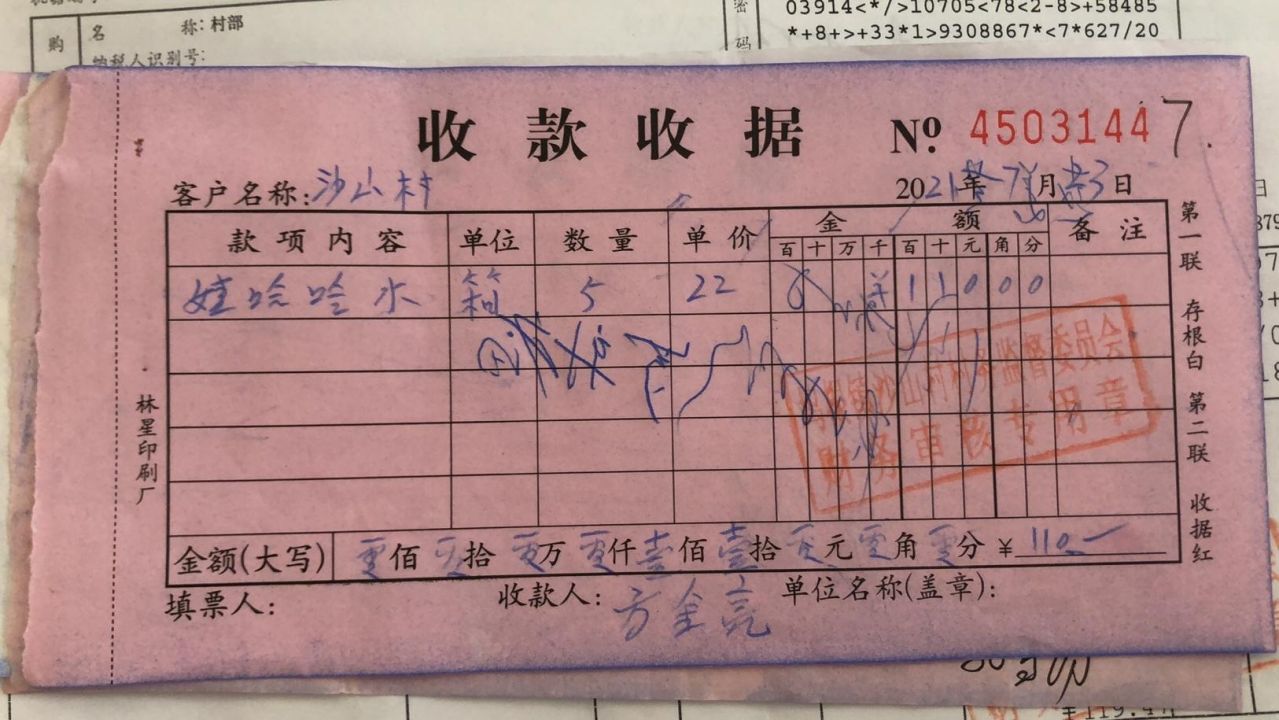 名 称: 村部
购
纳税人识别号:
密
码
03914<*/>10705<78<2-8>+58485
*+8+>+33*1>9308867*<7*627/20
收款收据 Nº 4503144 7
客户名称: 沙山村 2021年7月 日
款项内容 单位 数量 单价 金额 备注
百 十 万 千 百 十 元 角 分
娃哈哈水 箱 5 22 ¥ 1 1 0 0 0
沙山村村务监督委员会
财务审核专用章
金额(大写) 零佰零拾零万零仟壹佰壹拾零元零角零分 ¥110.-
填票人: 收款人: 方全亮 单位名称(盖章):
第一联 存根白 第二联 收据红
林星印刷厂